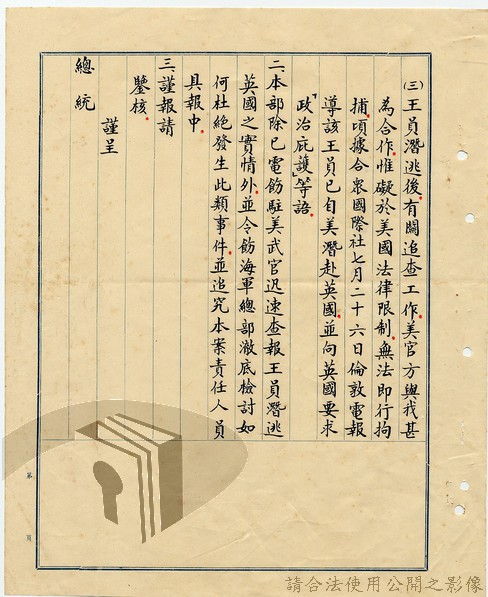 (三)王員潛逃後,有關追查工作,美官方與我甚
為合作,惟礙於美國法律限制,無法即行拘
捕,頃據合眾國際社七月二十六日倫敦電報
導該王員已自美潛赴英國,並向英國要求
「政治庇護」等語。
二、本部除已電飭駐美武官迅速查報王員潛逃
英國之實情外,並令飭海軍總部澈底檢討如
何杜絕發生此類事件,並追究本案責任人員
具報中。
三、謹報請
鑒核。
謹呈
總統
第 頁
請合法使用公開之影像